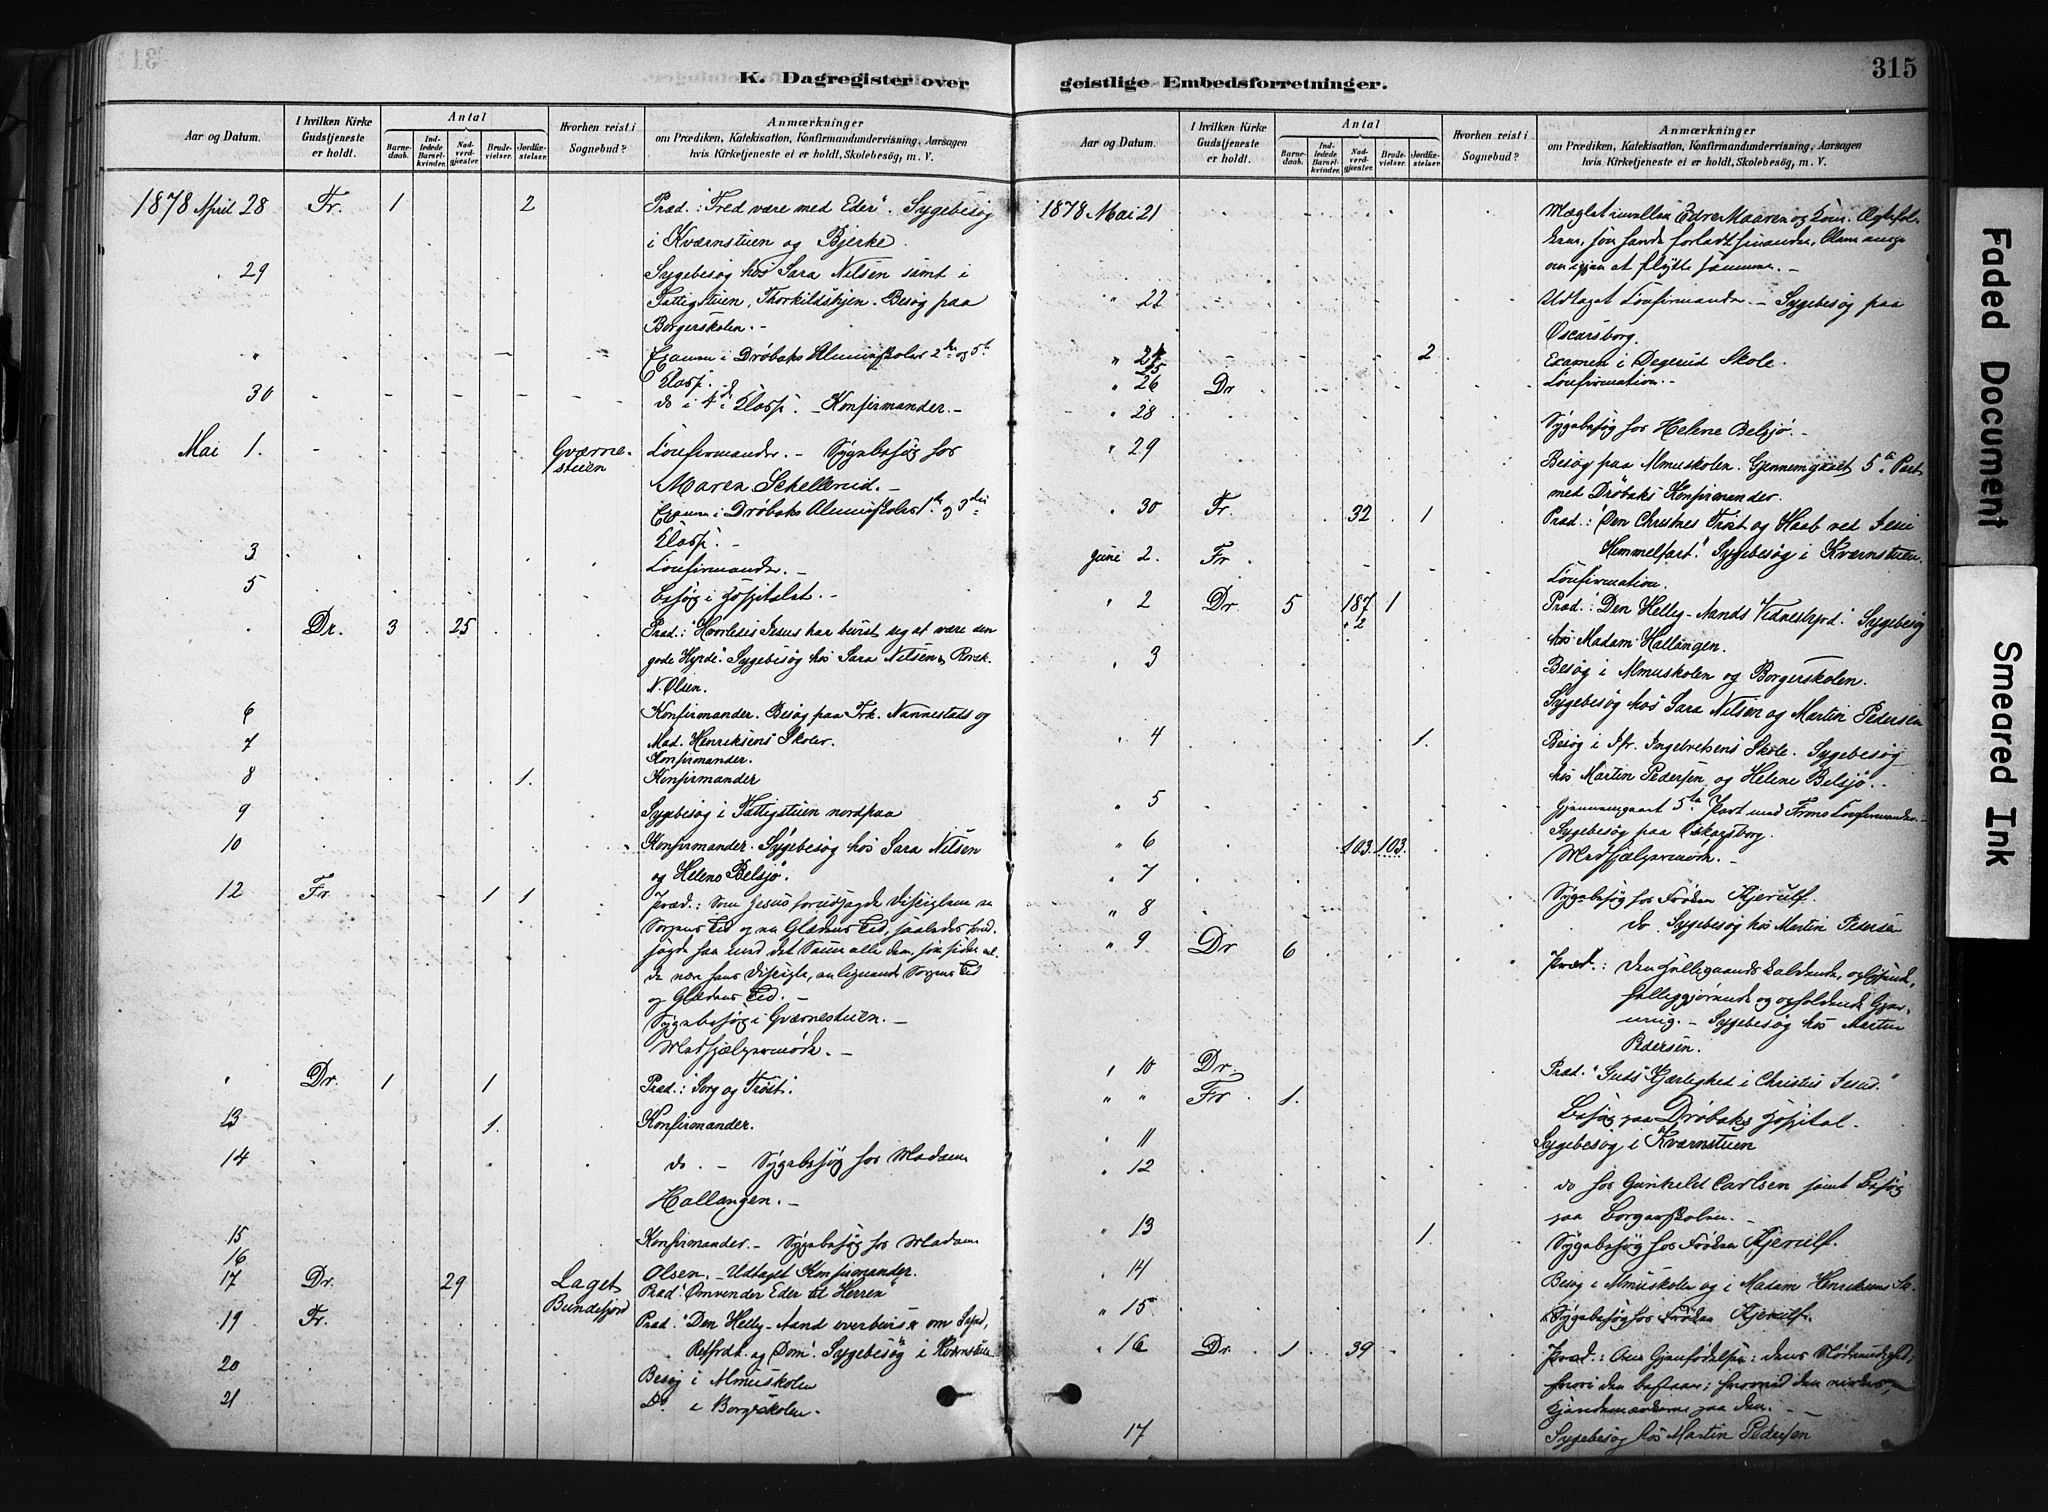 K. Dagregister over
Aar og Datum.
I hvilken Kirke Gudstjeneste er holdt.
Antal
Barnedaab.
Indledede Barselkvinder.
Nadverdgjæster.
Brudevielser.
Jordfæstelser.
Hvorhen reist i Sognebud?
Anmærkninger
om Prædiken, Katekisation, Konfirmandundervisning, Aarsagen
hvis Kirketjeneste ei er holdt, Skolebesøg, m. V.
1878 April 28 Fr. 1 2 Præd.: "Fred være med Eder". Sygebesøg
i Kværnstuen og Bjerke.
29 Sygebesøg hos Sara Nilsen samt i
Fattigstuen, Thorkildskjen. Besøg paa
Borgerskolen. -
" Examen i Drøbaks Almueskoles 2den og 5te
Klasse.
30 do i 4de Klasse. - Konfirmander. -
Mai 1. Gværne-stuen Confirmander. - Sygebesøg hos
Maren Skellerud. -
Examen i Drøbaks Almueskoles 1ste og 3die
Klasse. -
3 Confirmander. -
5 Besøg i Hospitalet. -
Dr. 3 25 Præd.: "Hvorledes Jesus har bevist sig at være den
gode Hyrde". Sygebesøg hos Sara Nilsen &
N. Olsen.
6 Konfirmander. Besøg paa Frk. Nannestads og
Mad. Henriksens Skoler.
7 Konfirmander.
8 1. Konfirmander
9 Sygebesøg i Fattigstuen nordpaa
10 Konfirmander. Sygebesøg hos Sara Nilsen
og Helene Belsjø.
12 Fr. 1 1 Præd.: Som Jesus forudsagde Disciplene en
Sorgens Tid og en Glædens Tid, saaledes
Disciple, en lignende Sorgens Tid
og Glædens Tid. -
Sygebesøg i Gværnestuen. -
Medhjælpermøde. -
" Dr. 1 1 Præd.: "Sorg og Trøst".
13 1. Konfirmander.
14 do. - Sygebesøg hos Madam
Hallangen. -
15 Konfirmander. - Sygebesøg hos Madam
16 Olsen. - Udtaget Konfirmander.
17 Dr. 29 Laget Bundefjord Præd. "Omvender Eder til Herren"
19 Fr. Præd. "Den Hellig-Aand overbeviser om Synd,
Retfrdt. og Dom". Sygebesøg i Kværnstuen
20 Besøg i Almueskolen
21 Do i Borgerskolen.
geistlige Embedsforretninger.
315
Aar og Datum.
I hvilken Kirke Gudstjeneste er holdt.
Antal
Barnedaab.
Indledede Barselkvinder.
Nadverdgjæster.
Brudevielser.
Jordfæstelser.
Hvorhen reist i Sognebud?
Anmærkninger
om Prædiken, Katekisation, Konfirmandundervisning, Aarsagen
hvis Kirketjeneste ei er holdt, Skolebesøg, m. V.
1878 Mai 21 Mæglet imellem Edre Maaren og Kone. Ægtefol-
kene, som havde forladt hinanden,
om igjen at flytte sammen. -
" 22 Udtaget Confirmander. - Sygebesøg paa
Oscarsborg.
" 24 2 Examen i Degerud Skole.
25
" 26 Dr Confirmation. -
" 28 Sygebesøg hos Helene Belsjø. -
" 29 Besøg paa Almuskolen. Gjennemgaaet 5te Part
med Drøbaks Konfirmander.
" 30 Fr. 32 1 Præd.: "Den Christnes Trøst og Haab ved Jesu
Himmelfart." Sygebesøg i Kværnstuen.
Juni 2. Fr Confirmation.
" 2 Dr. 5 187 1 Præd.: "Den Hellig-Aands Vidnesbyrd". Sygebesøg
+2 hos Madam Hallangen.
" 3 Besøg i Almuskolen og Borgerskolen.
Sygebesøg hos Sara Nilsen og Martin Pedersen
" 4 1. Besøg i Jfr. Ingebretsens Skole. Sygebesøg
hos Martin Pedersen og Helene Belsjø. -
" 5 Gjennemgaaet 5te Part med Frons Confirmander. -
Sygebesøg paa Oskarsborg.
" 6 103. 103. Medhjælpermøde. -
" 7 Sygebesøg hos Frøken Kjerulf.
" 8 do. Sygebesøg hos Martin Pedersen
" 9 Dr 6 Præd.: Den Helligaands kaldende, oplysende,
helliggjørende og opholdende Gjer-
ning. - Sygebesøg hos Martin
Pedersen.
" 10 Dr. Præd. "Guds Kjærlighed i Christus Jesus."
" " Fr. 1. Besøg paa Drøbaks Hospital.
" 11 Sygebesøg i Kværnstuen
" 12 do hos Gunhild Carlsen samt Besøg
paa Borgerskolen. -
" 13 1. Sygebesøg hos Frøken Kjerulf.
" 14 Besøg i Almuskolen og i Madam Henriksens Sk.
" 15 Sygebesøg hos Frøken Kjerulf.
" 16 Dr. 1 39 Præd.: Om Gjenfødelsen: dens Nødvendighed;
hvori den bestaar; hvorved den virkes;
Kjendemærkerne paa den. -
17 Sygebesøg hos Martin Pedersen
Faded Document
Smeared Ink